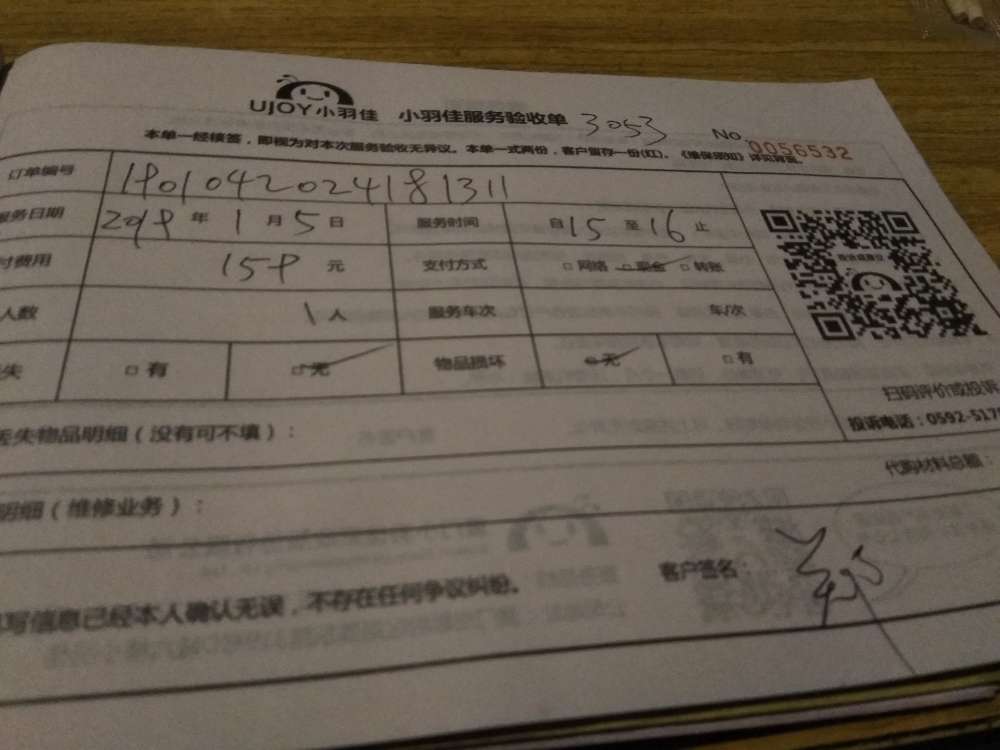 UJOY小羽佳 小羽佳服务验收单 3053
No.0056532
本单一经核签，即视为对本次服务验收无异议。本单一式两份，客户留存一份(红)。《维保须知》详见背面。
订单编号 1901042024181311
服务日期 2019年1月5日 服务时间 自15至16止
付费用 159元 支付方式 □网络 □现金 □转账
人数 1人 服务车次 车/次
失 □有 □无 物品损坏 □无 □有
扫码评价或投诉
投诉电话：0592-517
丢失物品明细（没有可不填）：
代购材料总额：
明细（维修业务）：
写信息已经本人确认无误，不存在任何争议纠纷。
客户签名：